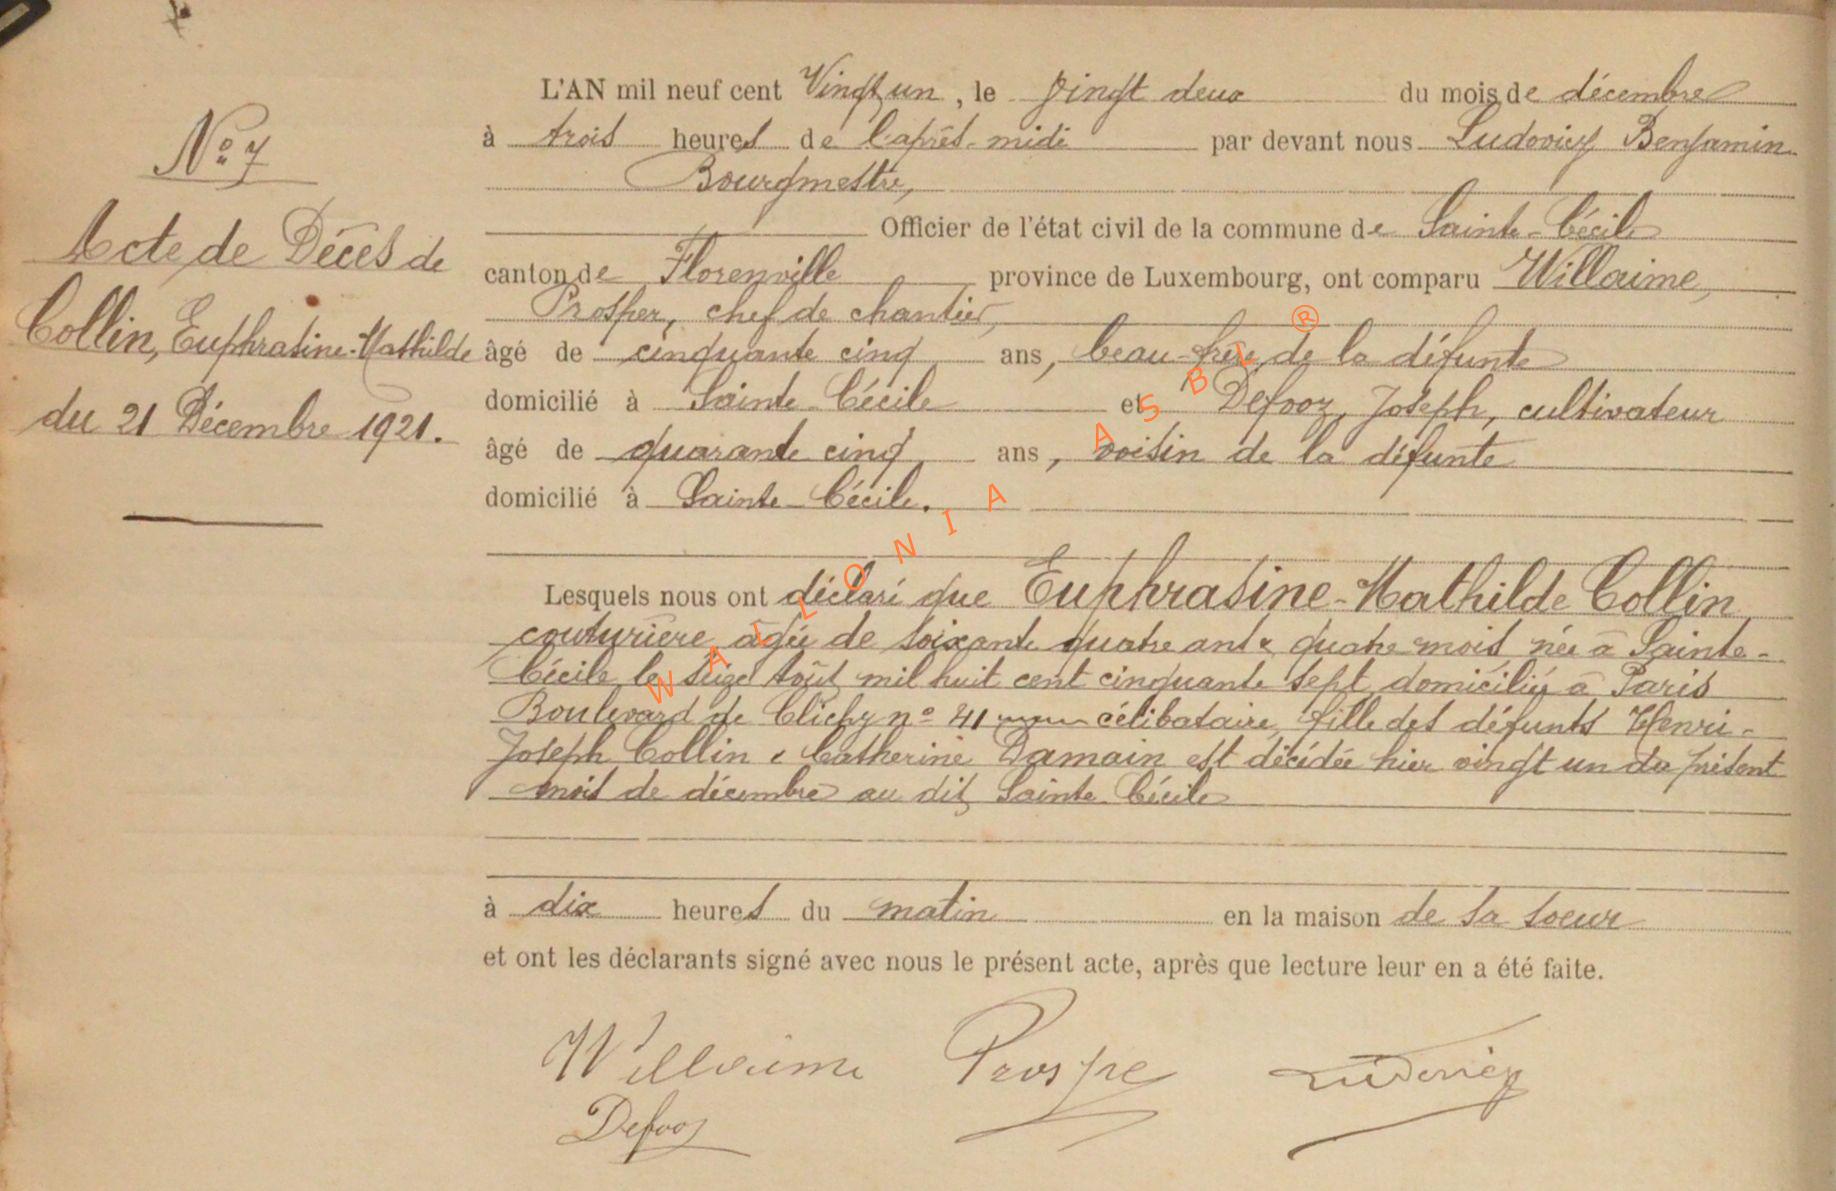 N° 7
Acte de Décès de
Collin, Euphrasine-Mathilde
du 21 Décembre 1921.
L'AN mil neuf cent Vingt un, le vingt deux du mois de décembre
à trois heures de l'après-midi par devant nous Ludovicy Benjamin
Bourgmestre,
Officier de l'état civil de la commune de Sainte-Cécile
canton de Florenville province de Luxembourg, ont comparu Willaime,
Prosper, chef de chantier,
âgé de cinquante cinq ans, beau-frère de la défunte
domicilié à Sainte-Cécile et Defooz, Joseph, cultivateur
âgé de quarante cinq ans, voisin de la défunte
domicilié à Sainte-Cécile.
Lesquels nous ont déclaré que Euphrasine-Mathilde Collin
couturière âgée de soixante quatre ans & quatre mois née à Sainte-
Cécile le seize août mil huit cent cinquante sept domiciliée à Paris
Boulevard de Clichy n° 41 célibataire, fille des défunts Henri-
Joseph Collin & Catherine Damain est décédée hier vingt un du présent
mois de décembre au dit Sainte-Cécile
à dix heures du matin en la maison de sa soeur
et ont les déclarants signé avec nous le présent acte, après que lecture leur en a été faite.
Willaime Prospe Ludovicy
Defooz
WALLONIA ASBL ®